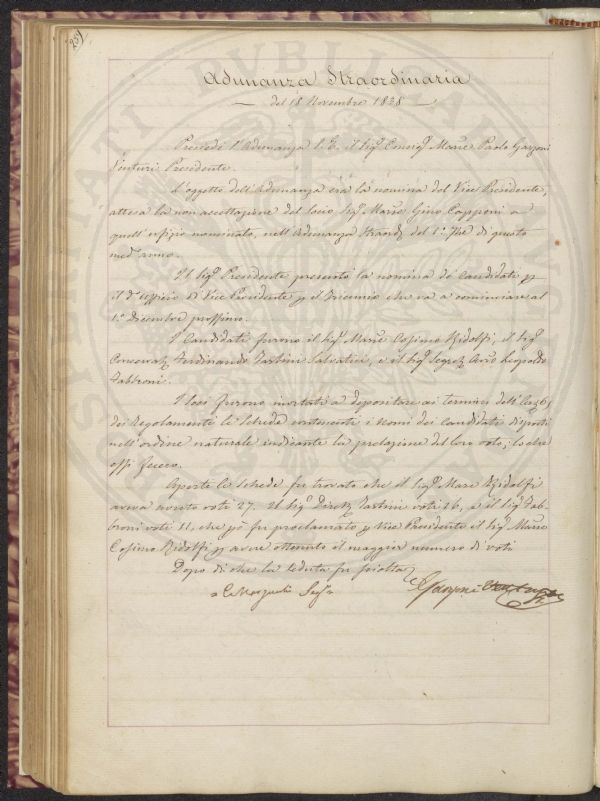 231
Adunanza Straordinaria
del 18 Novembre 1828
Precedè l'Adunanza S. E. il Sigr Consigr Marse Paolo Garzoni
Venturi Presidente.
L'oggetto dell'Adunanza era la nomina del Vice Presidente,
attesa la non accettazione del Socio Sigr Marse Gino Capponi a
quell'uffizio nominato, nell'Adunanza Straordra del 1º 7bre di questo
medo anno.
Il Sigr Presidente presentò la nomina de' Candidati p
il do uffizio di Vice Presidente p il Triennio che va a cominciare al
1º Dicembre prossimo.
I Candidati furono il Sigr Marse Cosimo Ridolfi, il Sigr
Ferdinando Tartini Salvatici, e il Sigr Segreto Leopoldo
Fabbroni.
I Soci furono invitati a depositare ai termini dell'
del Regolamento le Schede contenenti i nomi dei Candidati disposti
nell'ordine naturale indicante la prelazione del loro voto; lo che
essi fecero.
Aperte le Schede fu trovato che il Sigr Marse Ridolfi
aveva avuto voti 27. il Sigr Tartini voti 16, e il Sigr Fab-
broni voti 11, che pò fu proclamato p Vice Presidente il Sigr Marse
Cosimo Ridolfi p avere ottenuto il maggior numero di voti
Dopo di che la Seduta fu sciolta
Segro
Garzoni Venturi